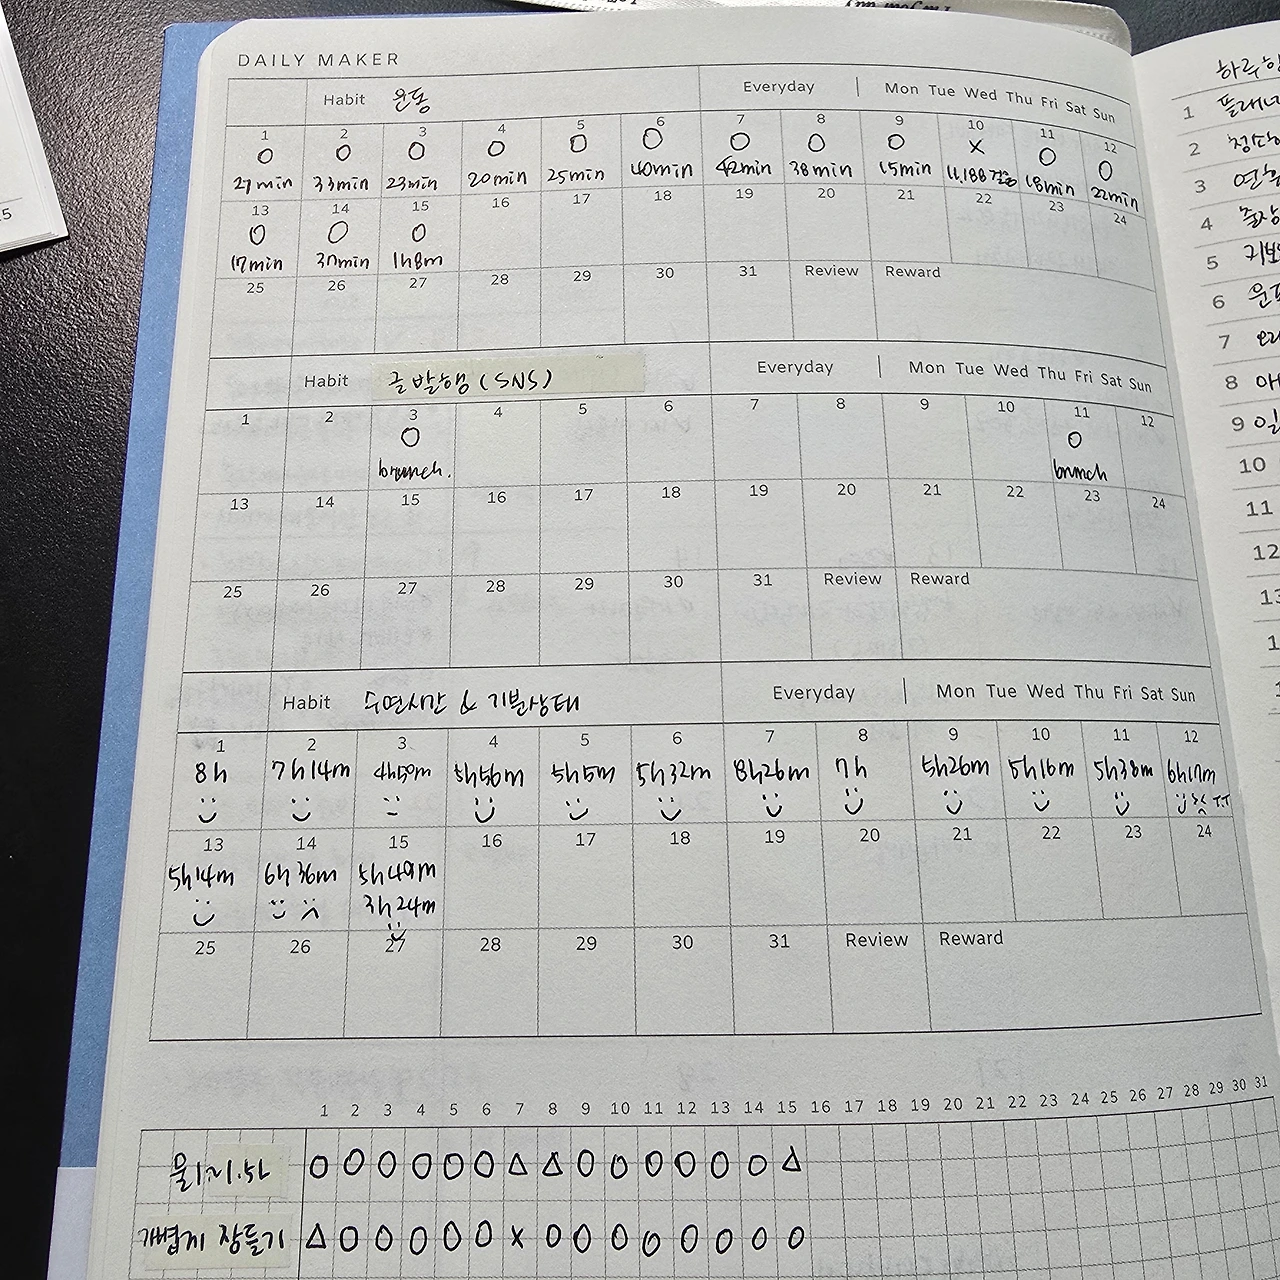 DAILY MAKER
Habit 운동 Everyday | Mon Tue Wed Thu Fri Sat Sun
1 2 3 4 5 6 7 8 9 10 11 12
O O O O O O O O O X O O
27min 33min 23min 20min 25min 40min 42min 38min 15min 11,188걸음 18min 22min
13 14 15 16 17 18 19 20 21 22 23 24
O O O
17min 37min 1h8m
25 26 27 28 29 30 31 Review Reward
Habit 글발행(SNS) Everyday | Mon Tue Wed Thu Fri Sat Sun
1 2 3 4 5 6 7 8 9 10 11 12
O O
brunch. brunch
13 14 15 16 17 18 19 20 21 22 23 24
25 26 27 28 29 30 31 Review Reward
Habit 수면시간 & 기분상태 Everyday | Mon Tue Wed Thu Fri Sat Sun
1 2 3 4 5 6 7 8 9 10 11 12
8h 7h14m 4h50m 5h56m 5h5m 5h32m 8h26m 7h 5h26m 5h16m 5h38m 6h17m
T.T
13 14 15 16 17 18 19 20 21 22 23 24
5h14m 6h36m 5h49m
3h24m
25 26 27 28 29 30 31 Review Reward
1 2 3 4 5 6 7 8 9 10 11 12 13 14 15 16 17 18 19 20 21 22 23 24 25 26 27 28 29 30 31
O O O O O O △ △ O O O O O O △
가볍게 잠들기 △ O O O O O X O O O O O O O O
1
2
3
4
5
6
7
8
9
10
11
12
13